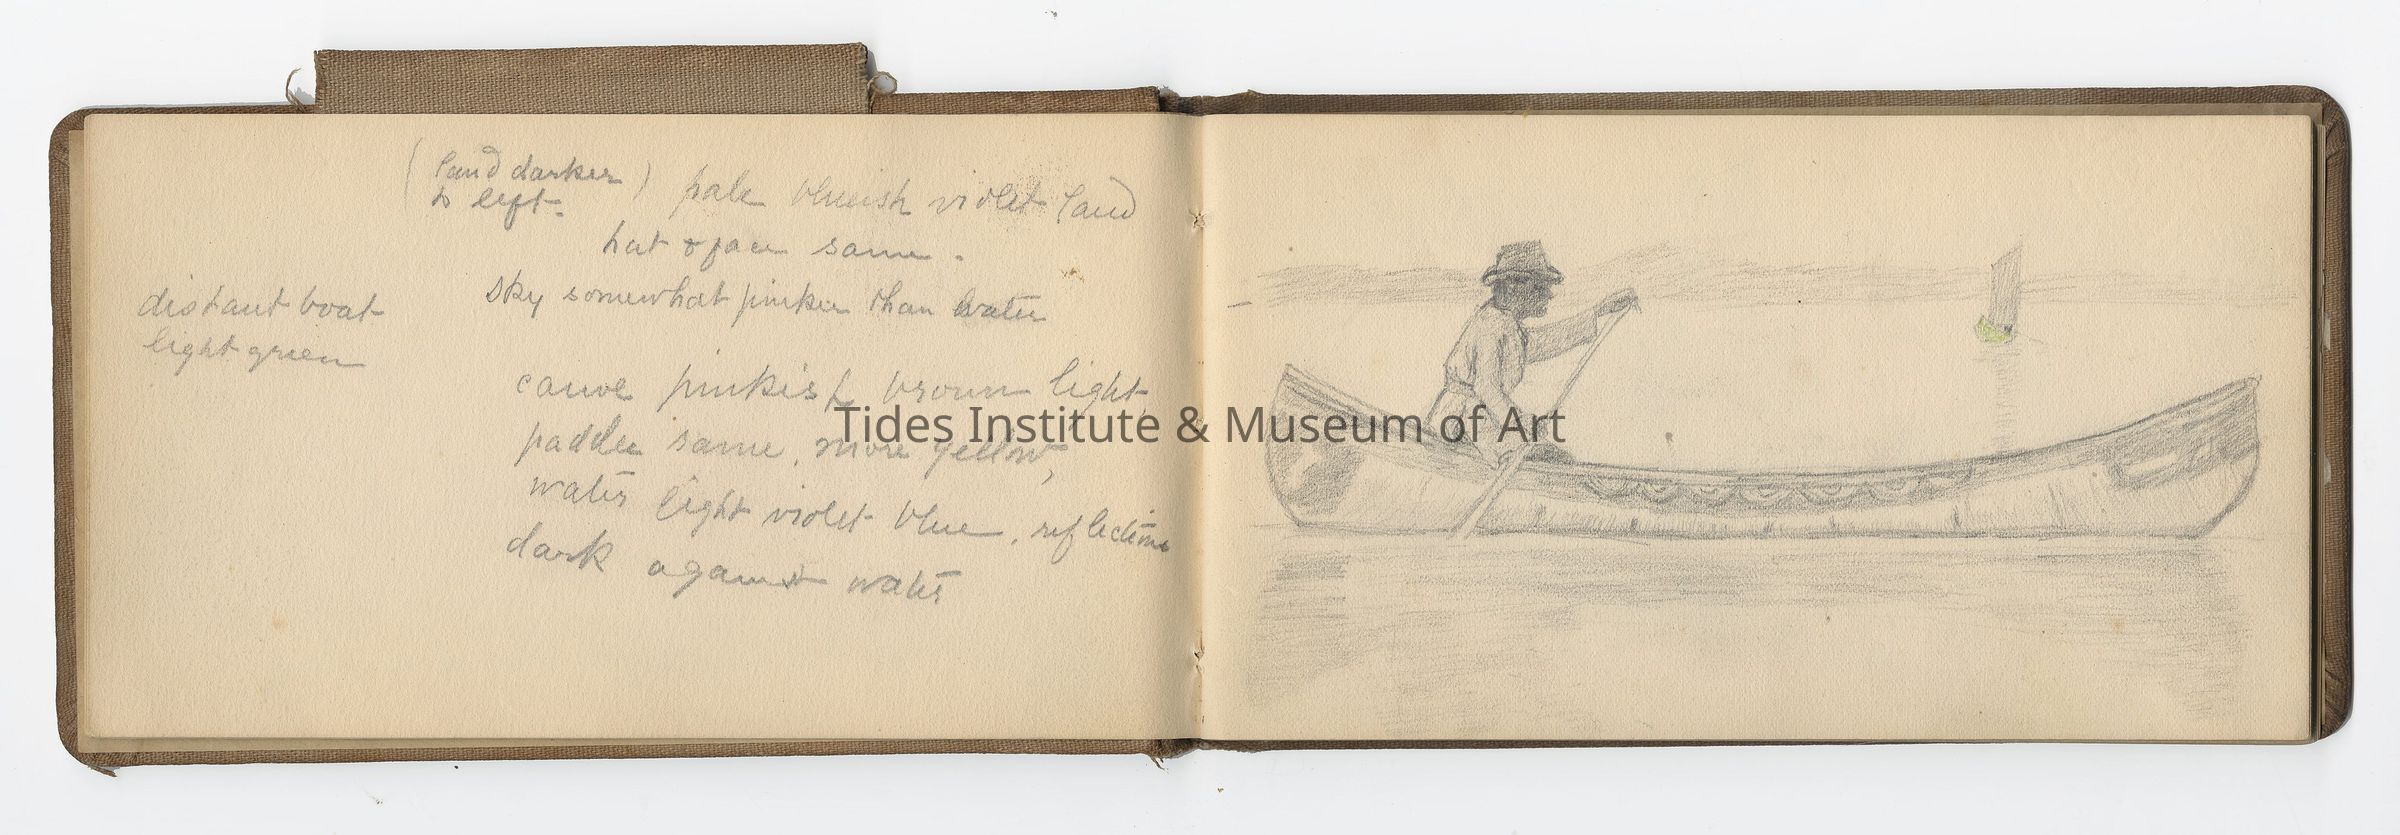 (land darker) pale blueish violet land
to left.
hat & face same.
sky somewhat pinker than water
distant boat
light green
canoe pinkish brown light,
paddle same, more yellow,
water light violet blue, reflections
dark against water
Tides Institute & Museum of Art